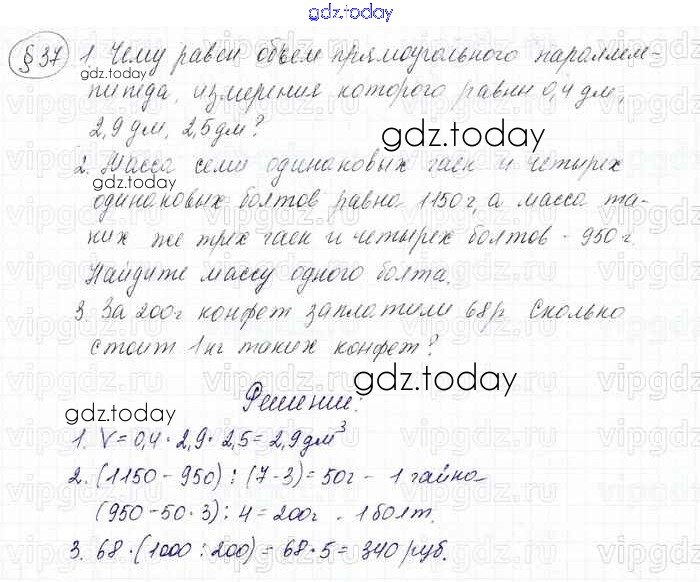 gdz.today
§ 37 1. Чему равен объем прямоугольного параллеле-
gdz.today
пипеда, измерения которого равны 0,4 дм,
2,9 дм, 2,5 дм?
gdz.today
2. Масса семи одинаковых гаек и четырех
gdz.today
одинаковых болтов равна 1150 г, а масса та-
ких же трех гаек и четырех болтов - 950 г.
Найдите массу одного болта.
3. За 200г конфет заплатили 68р. Сколько
стоит 1 кг таких конфет?
gdz.today
Решение:
gdz.today
1. V = 0,4 · 2,9 · 2,5 = 2,9 дм³
2. (1150 - 950) : (7 - 3) = 50г - 1 гайка
(950 - 50 · 3) : 4 = 200г - 1 болт.
3. 68 · (1000 : 200) = 68 · 5 = 340 руб.